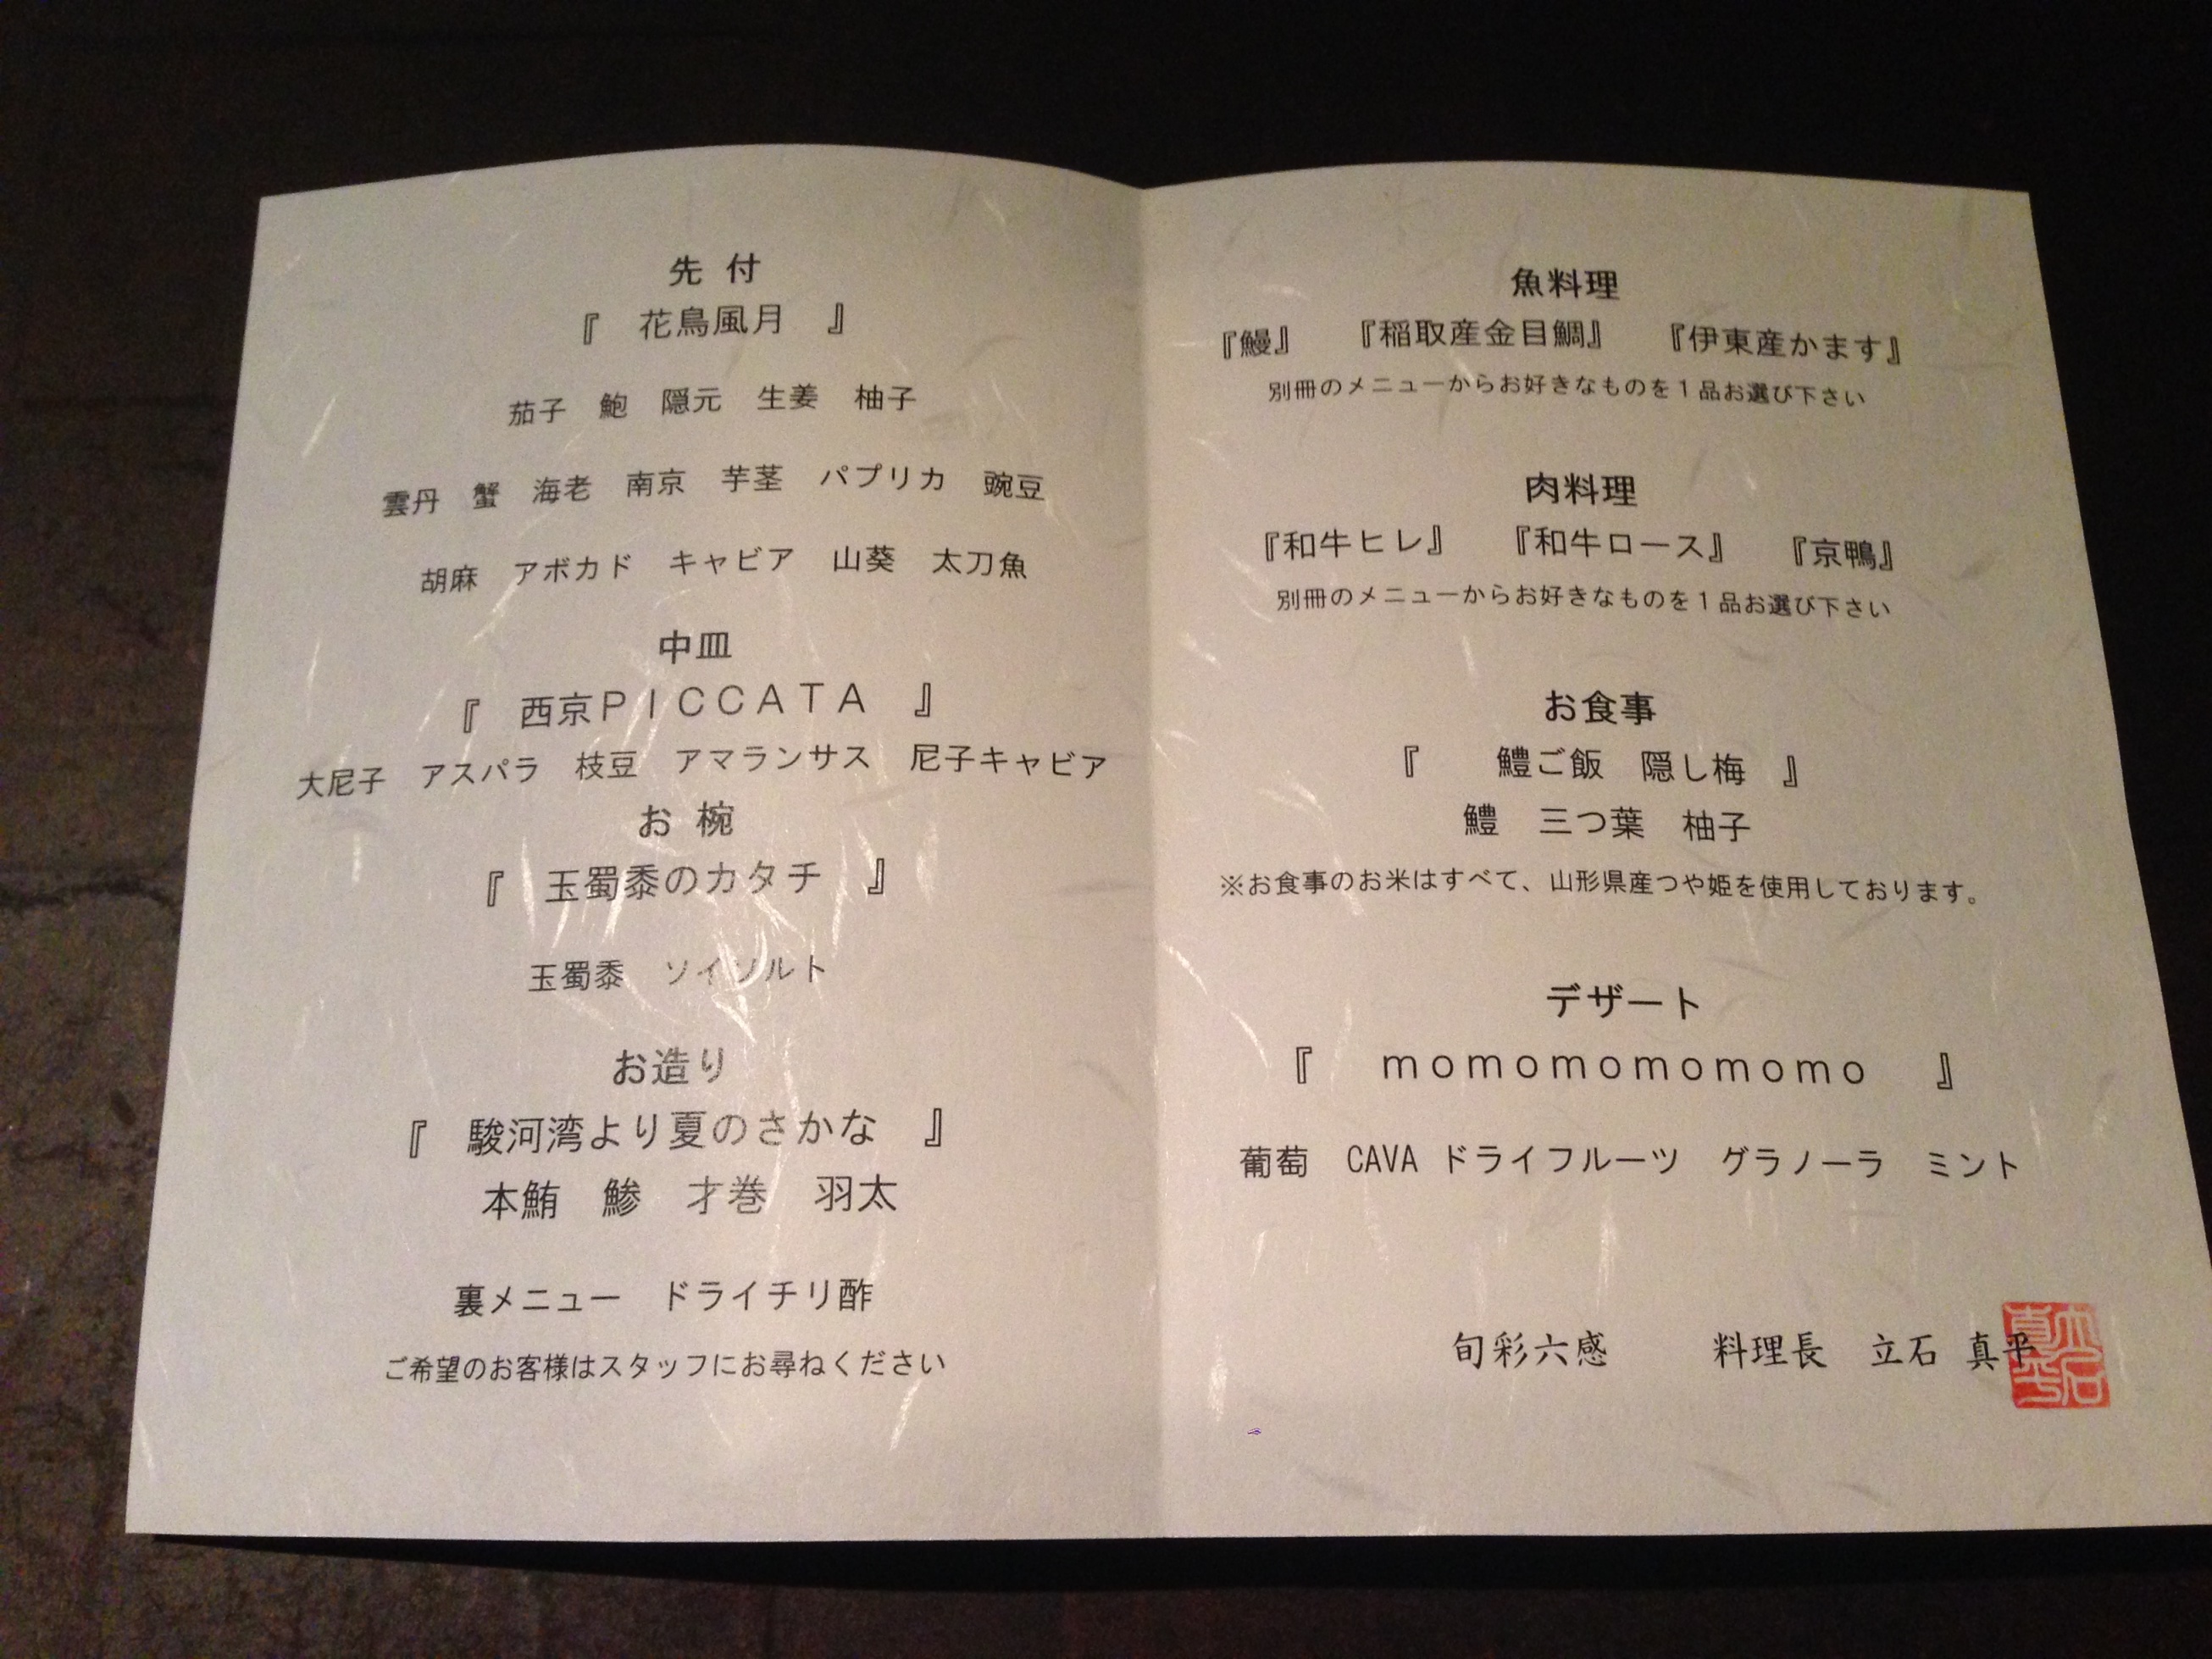 先付
『 花鳥風月 』
茄子 鮑 隠元 生姜 柚子
雲丹 蟹 海老 南京 芋茎 パプリカ 豌豆
胡麻 アボカド キャビア 山葵 太刀魚
中皿
『 西京ＰＩＣＣＡＴＡ 』
大尼子 アスパラ 枝豆 アマランサス 尼子キャビア
お椀
『 玉蜀黍のカタチ 』
玉蜀黍 ソイソルト
お造り
『 駿河湾より夏のさかな 』
本鮪 鯵 才巻 羽太
裏メニュー ドライチリ酢
ご希望のお客様はスタッフにお尋ねください
魚料理
『鰻』 『稲取産金目鯛』 『伊東産かます』
別冊のメニューからお好きなものを１品お選び下さい
肉料理
『和牛ヒレ』 『和牛ロース』 『京鴨』
別冊のメニューからお好きなものを１品お選び下さい
お食事
『 鱧ご飯 隠し梅 』
鱧 三つ葉 柚子
※お食事のお米はすべて、山形県産つや姫を使用しております。
デザート
『 ｍｏｍｏｍｏｍｏｍｏｍｏ 』
葡萄 CAVA ドライフルーツ グラノーラ ミント
旬彩六感 料理長 立石 真平